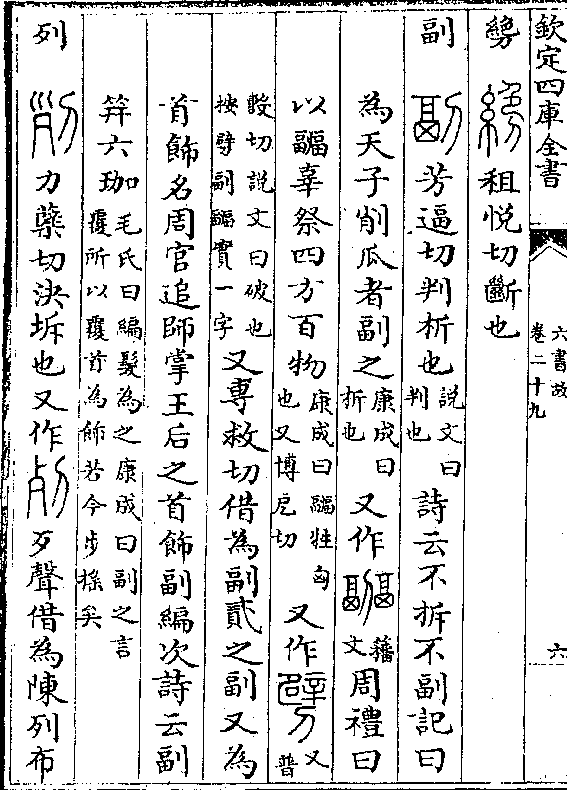 欽定四庫全書 六書故 卷二十九 六
租悦切斷也
副 芳逼切判析也 說文曰判也 詩云不拆不副記曰
為天子削瓜者副之 康成曰析也 又作 籒文 周禮曰
以疈辜祭四方百物 康成曰疈牲匈也又博戹切 又作 又普
毄切說文曰破也按劈副疈實一字 又專救切借為副貳之副又為
首飾名周官追師掌王后之首飾副編次詩云副
笄六珈 毛氏曰編髮為之康成曰副之言覆所以覆首為飾若今步搖矣
列 力蘗切決坼也又作 歹聲借為陳列布